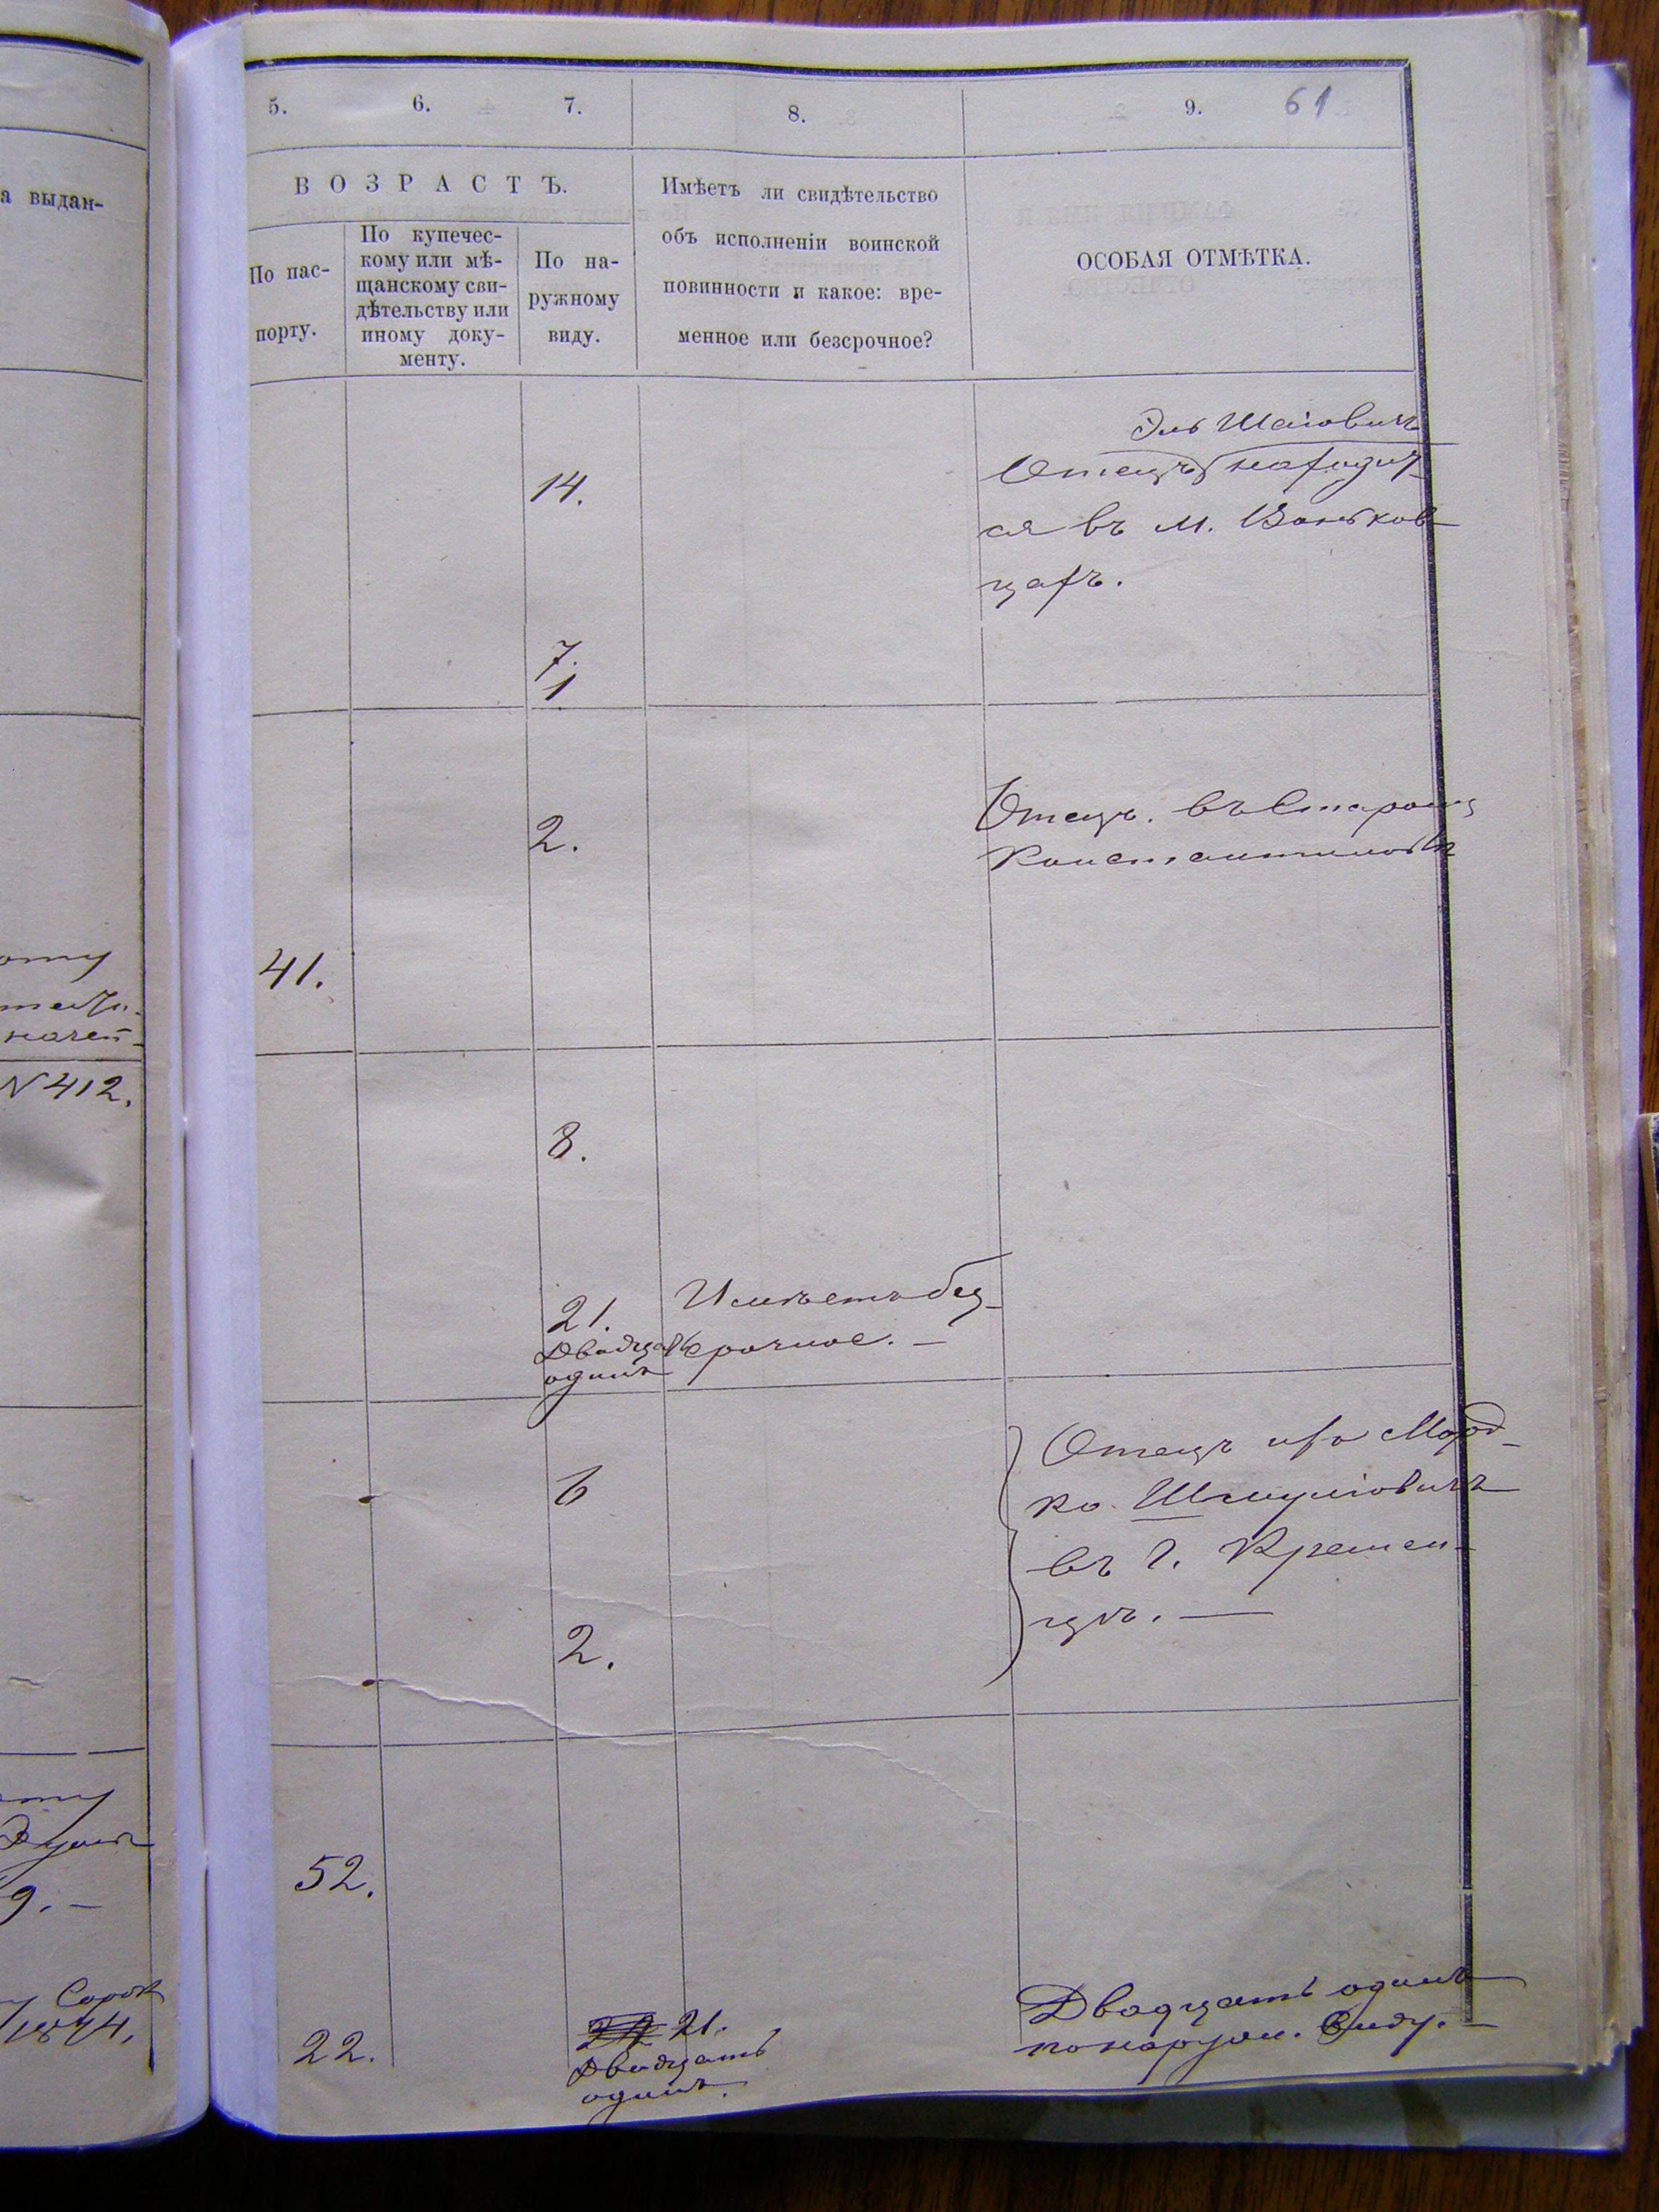 а выдан-
ому
N 412.
9. —
Сорок
1874.
5.
6.
7.
8.
9.
61
ВОЗРАСТЪ.
По пас-
порту.
По купечес-
кому или мѣ-
щанскому сви-
дѣтельству или
иному доку-
менту.
По на-
ружному
виду.
Имѣетъ ли свидѣтельство
объ исполненіи воинской
повинности и какое: вре-
менное или безсрочное?
ОСОБАЯ ОТМѢТКА.
14.
7.
1
Эль Шаіовичъ
Отецъ находит-
ся въ м. Воньков-
цахъ.
2.
41.
Отецъ. въ Старомъ
Константиновѣ
8.
21.
Двадцать
одинъ
Имѣетъ без-
срочное. —
6
2.
Отецъ ихъ Морд-
ко Шмуліовичъ
въ г. Кремен-
цѣ. —
52.
22.
22 21.
Двадцать
одинъ.
Двадцать одинъ
по наружн. виду. —